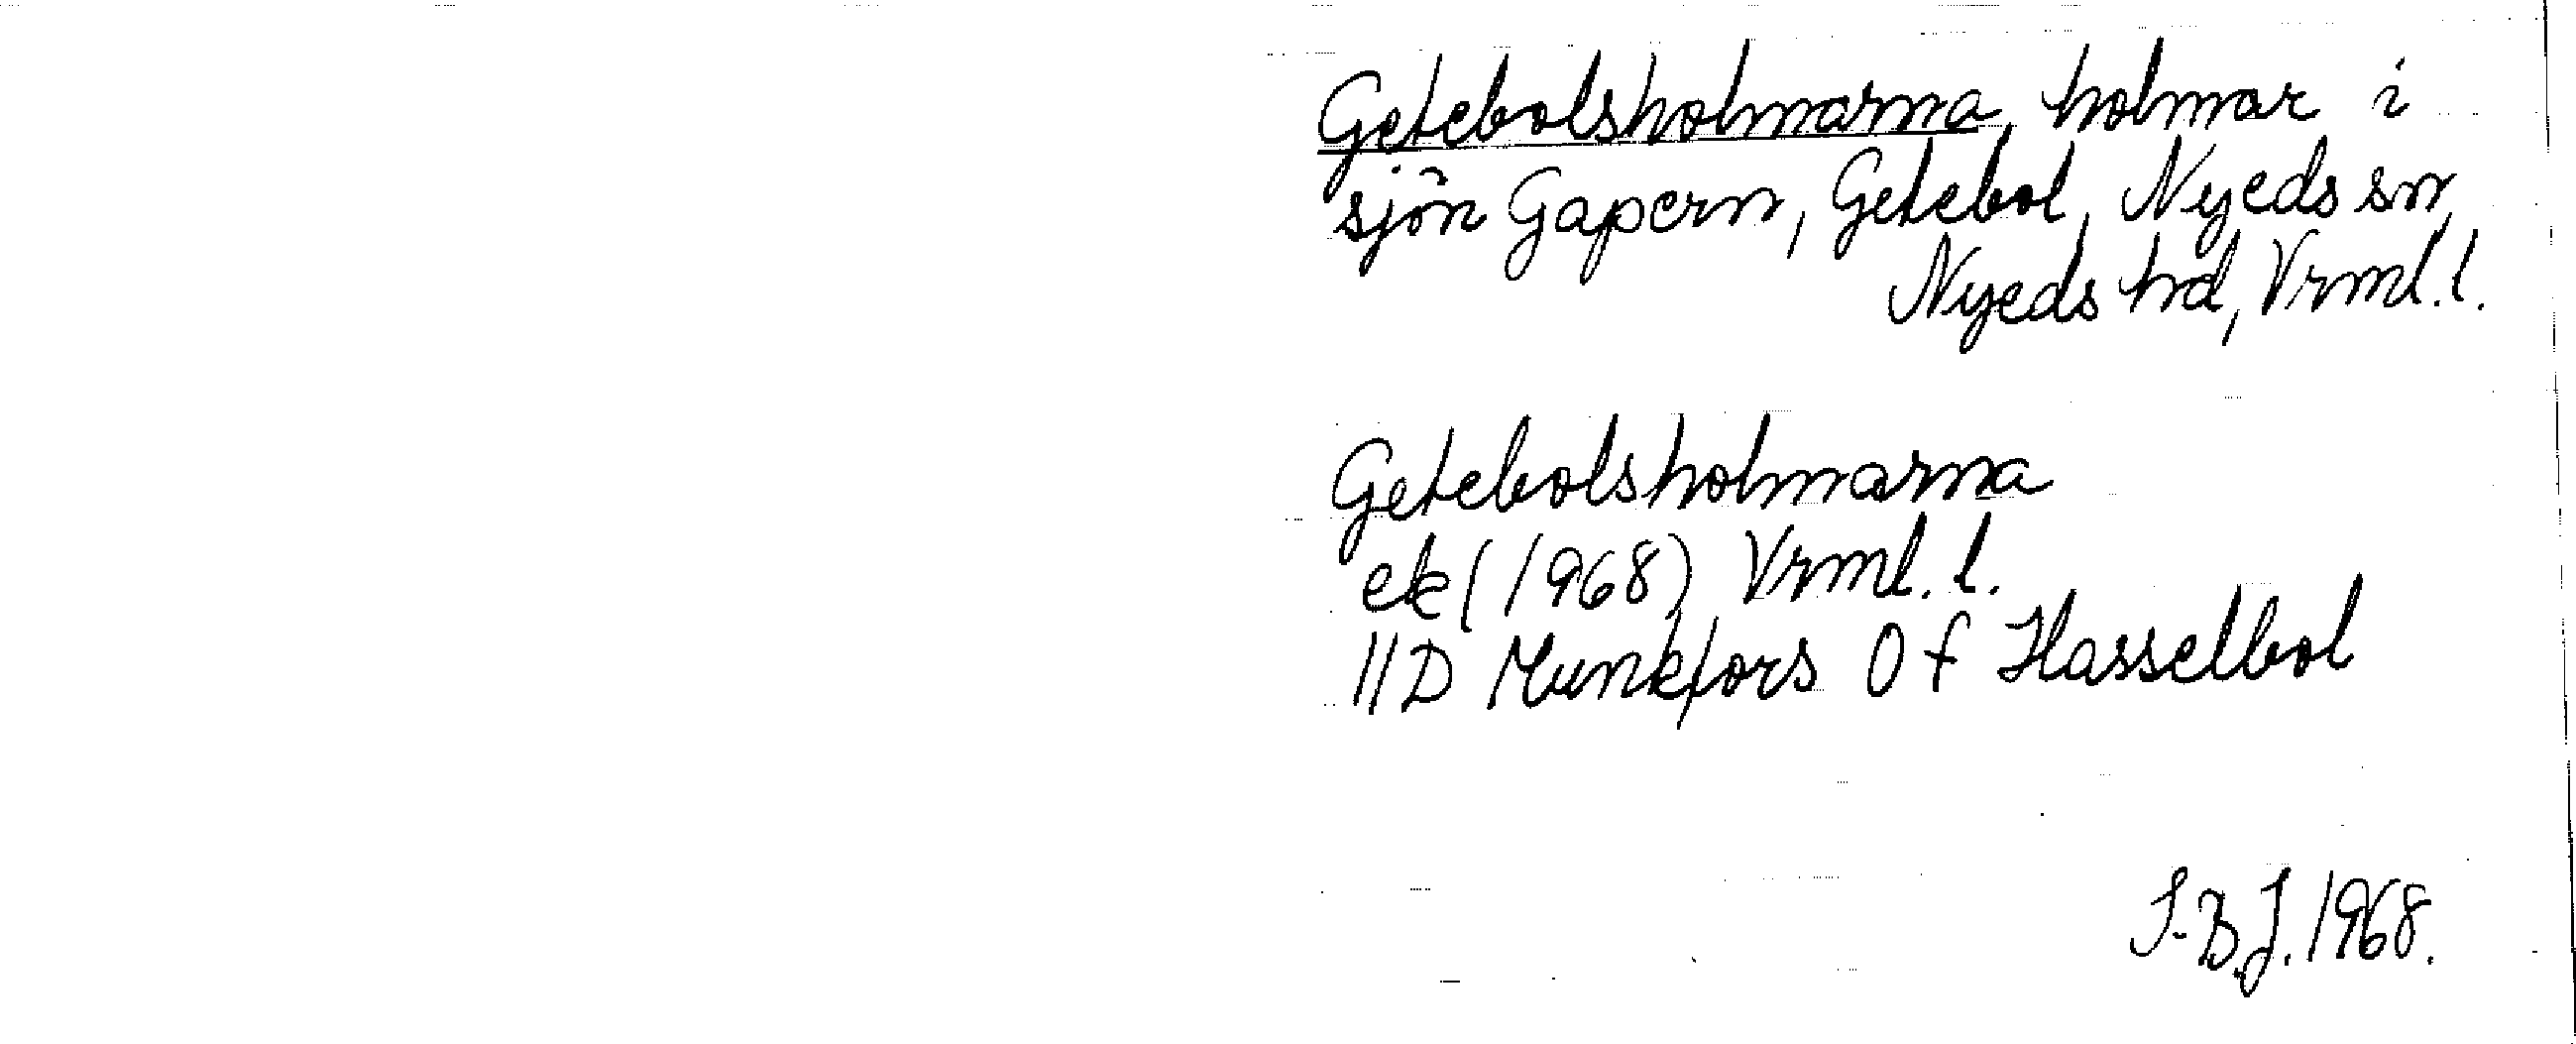 Getebolsholmarna, holmar i
sjön Gapern, Getebol, Nyeds sn,
Nyeds hd, Vrml. l.
Getebolsholmarna
ek (1968) Vrml. l.
11D Munkfors 0 f Hasselbol
I-B.J. 1968.